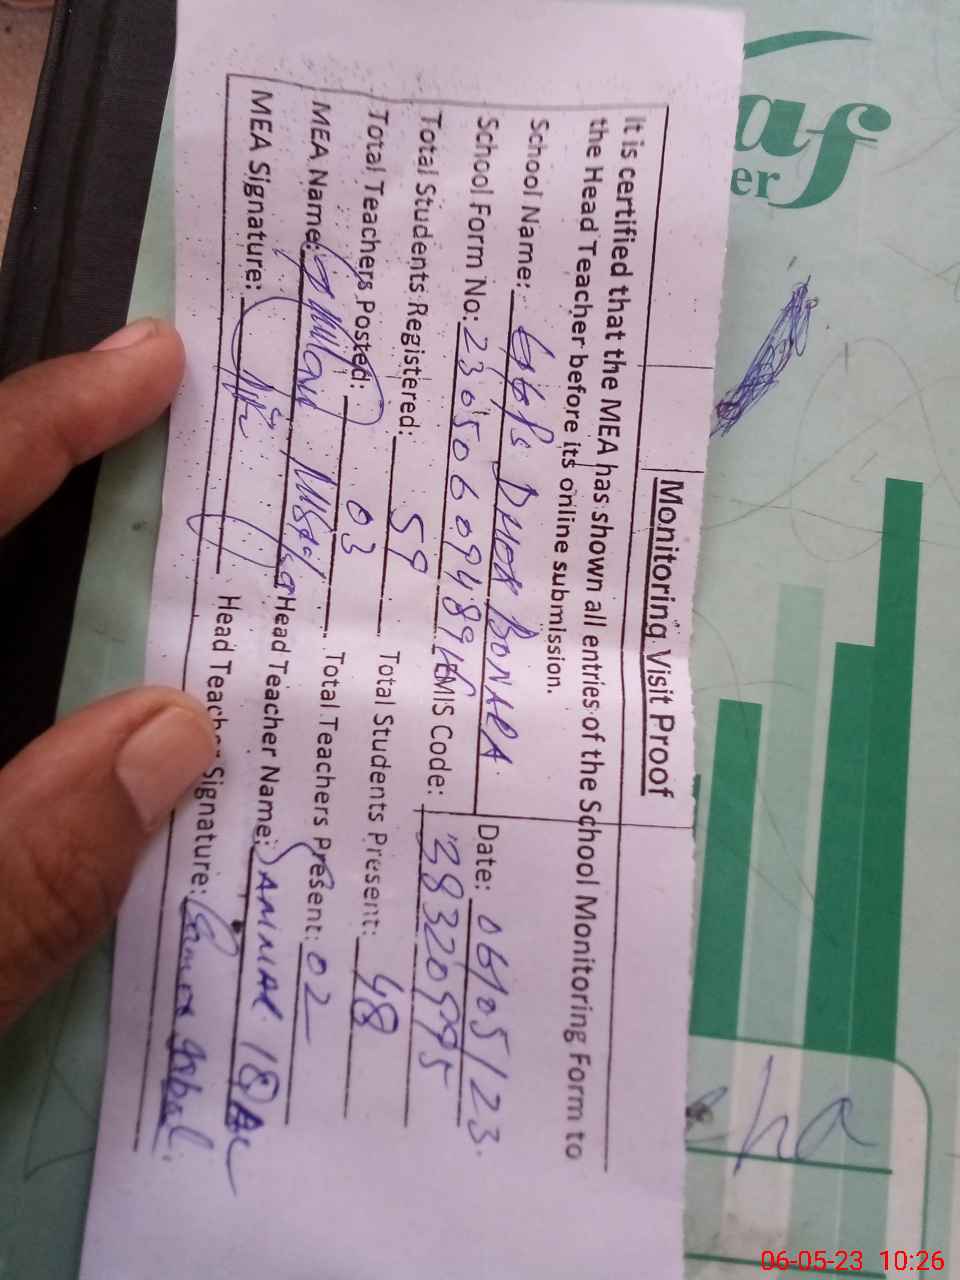 af
er
Monitoring Visit Proof
It is certified that the MEA has shown all entries of the School Monitoring Form to
the Head Teacher before its online submission.
School Name: GGPS DHOK BONARA. Date: 06/05/23.
School Form No: 2305060948916 EMIS Code: 38320495
Total Students Registered: 59 Total Students Present: 48
Total Teachers Posted: 03 Total Teachers Present: 02
MEA Name: Ghulam Head Teacher Name: SAMINAR
MEA Signature: Head Teacher Signature:
06-05-23 10:26